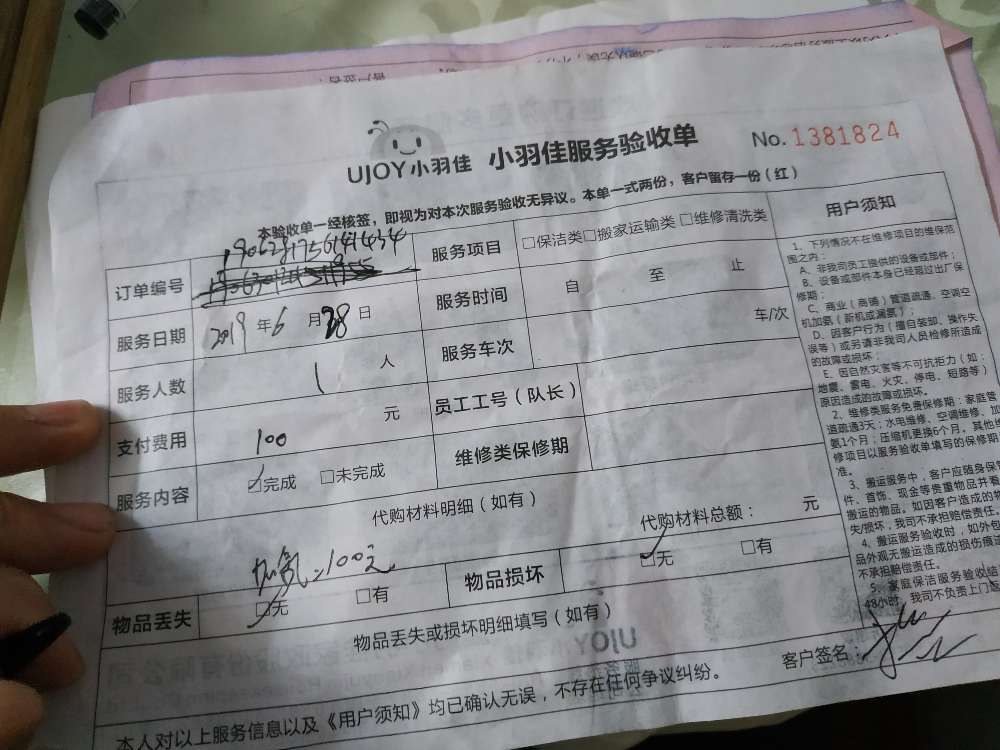 UJOY小羽佳 小羽佳服务验收单
No. 1381824
本验收单一经核签，即视为对本次服务验收无异议。本单一式两份，客户留存一份（红）
订单编号 1906281756141434
服务项目 □保洁类□搬家运输类 □维修清洗类
服务日期 2019 年 6 月 28 日
服务时间 自 至 止
服务人数 1 人
服务车次 车/次
支付费用 100 元
员工工号（队长）
服务内容 ☑完成 □未完成
维修类保修期
代购材料明细（如有）
代购材料总额： 元
加氟=100元
物品丢失 ☑无 □有
物品损坏 ☑无 □有
物品丢失或损坏明细填写（如有）
客户签名：
本人对以上服务信息以及《用户须知》均已确认无误，不存在任何争议纠纷。
用户须知
1、下列情况不在维修项目的维保范
围之内：
A、非我司员工提供的设备或部件；
B、设备或部件本身已经超过出厂保
修期；
C、商业（商铺）管道疏通、空调空
机加氨（新机或漏氨）；
D、因客户行为（擅自装卸、操作失
误等）或另请非我司人员检修所造成
的故障或损坏；
E、因自然灾害等不可抗拒力（如：
地震、雷电、火灾、停电、短路等）
原因造成的故障或损坏。
2、维修类服务免费保修期：家庭管
道疏通3天；水电维修、空调维修、加
氨1个月；压缩机更换6个月。其他维
修项目以服务验收单填写的保修期
准。
3、搬运服务中，客户应随身保管
件、首饰、现金等贵重物品并看
搬运的物品。如因客户造成的物
失/损坏，我司不承担赔偿责任。
4、搬运服务验收时，如外包
品外观无搬运造成的损伤痕迹
不承担赔偿责任。
5、家庭保洁服务验收结
48小时，我司不负责上门返